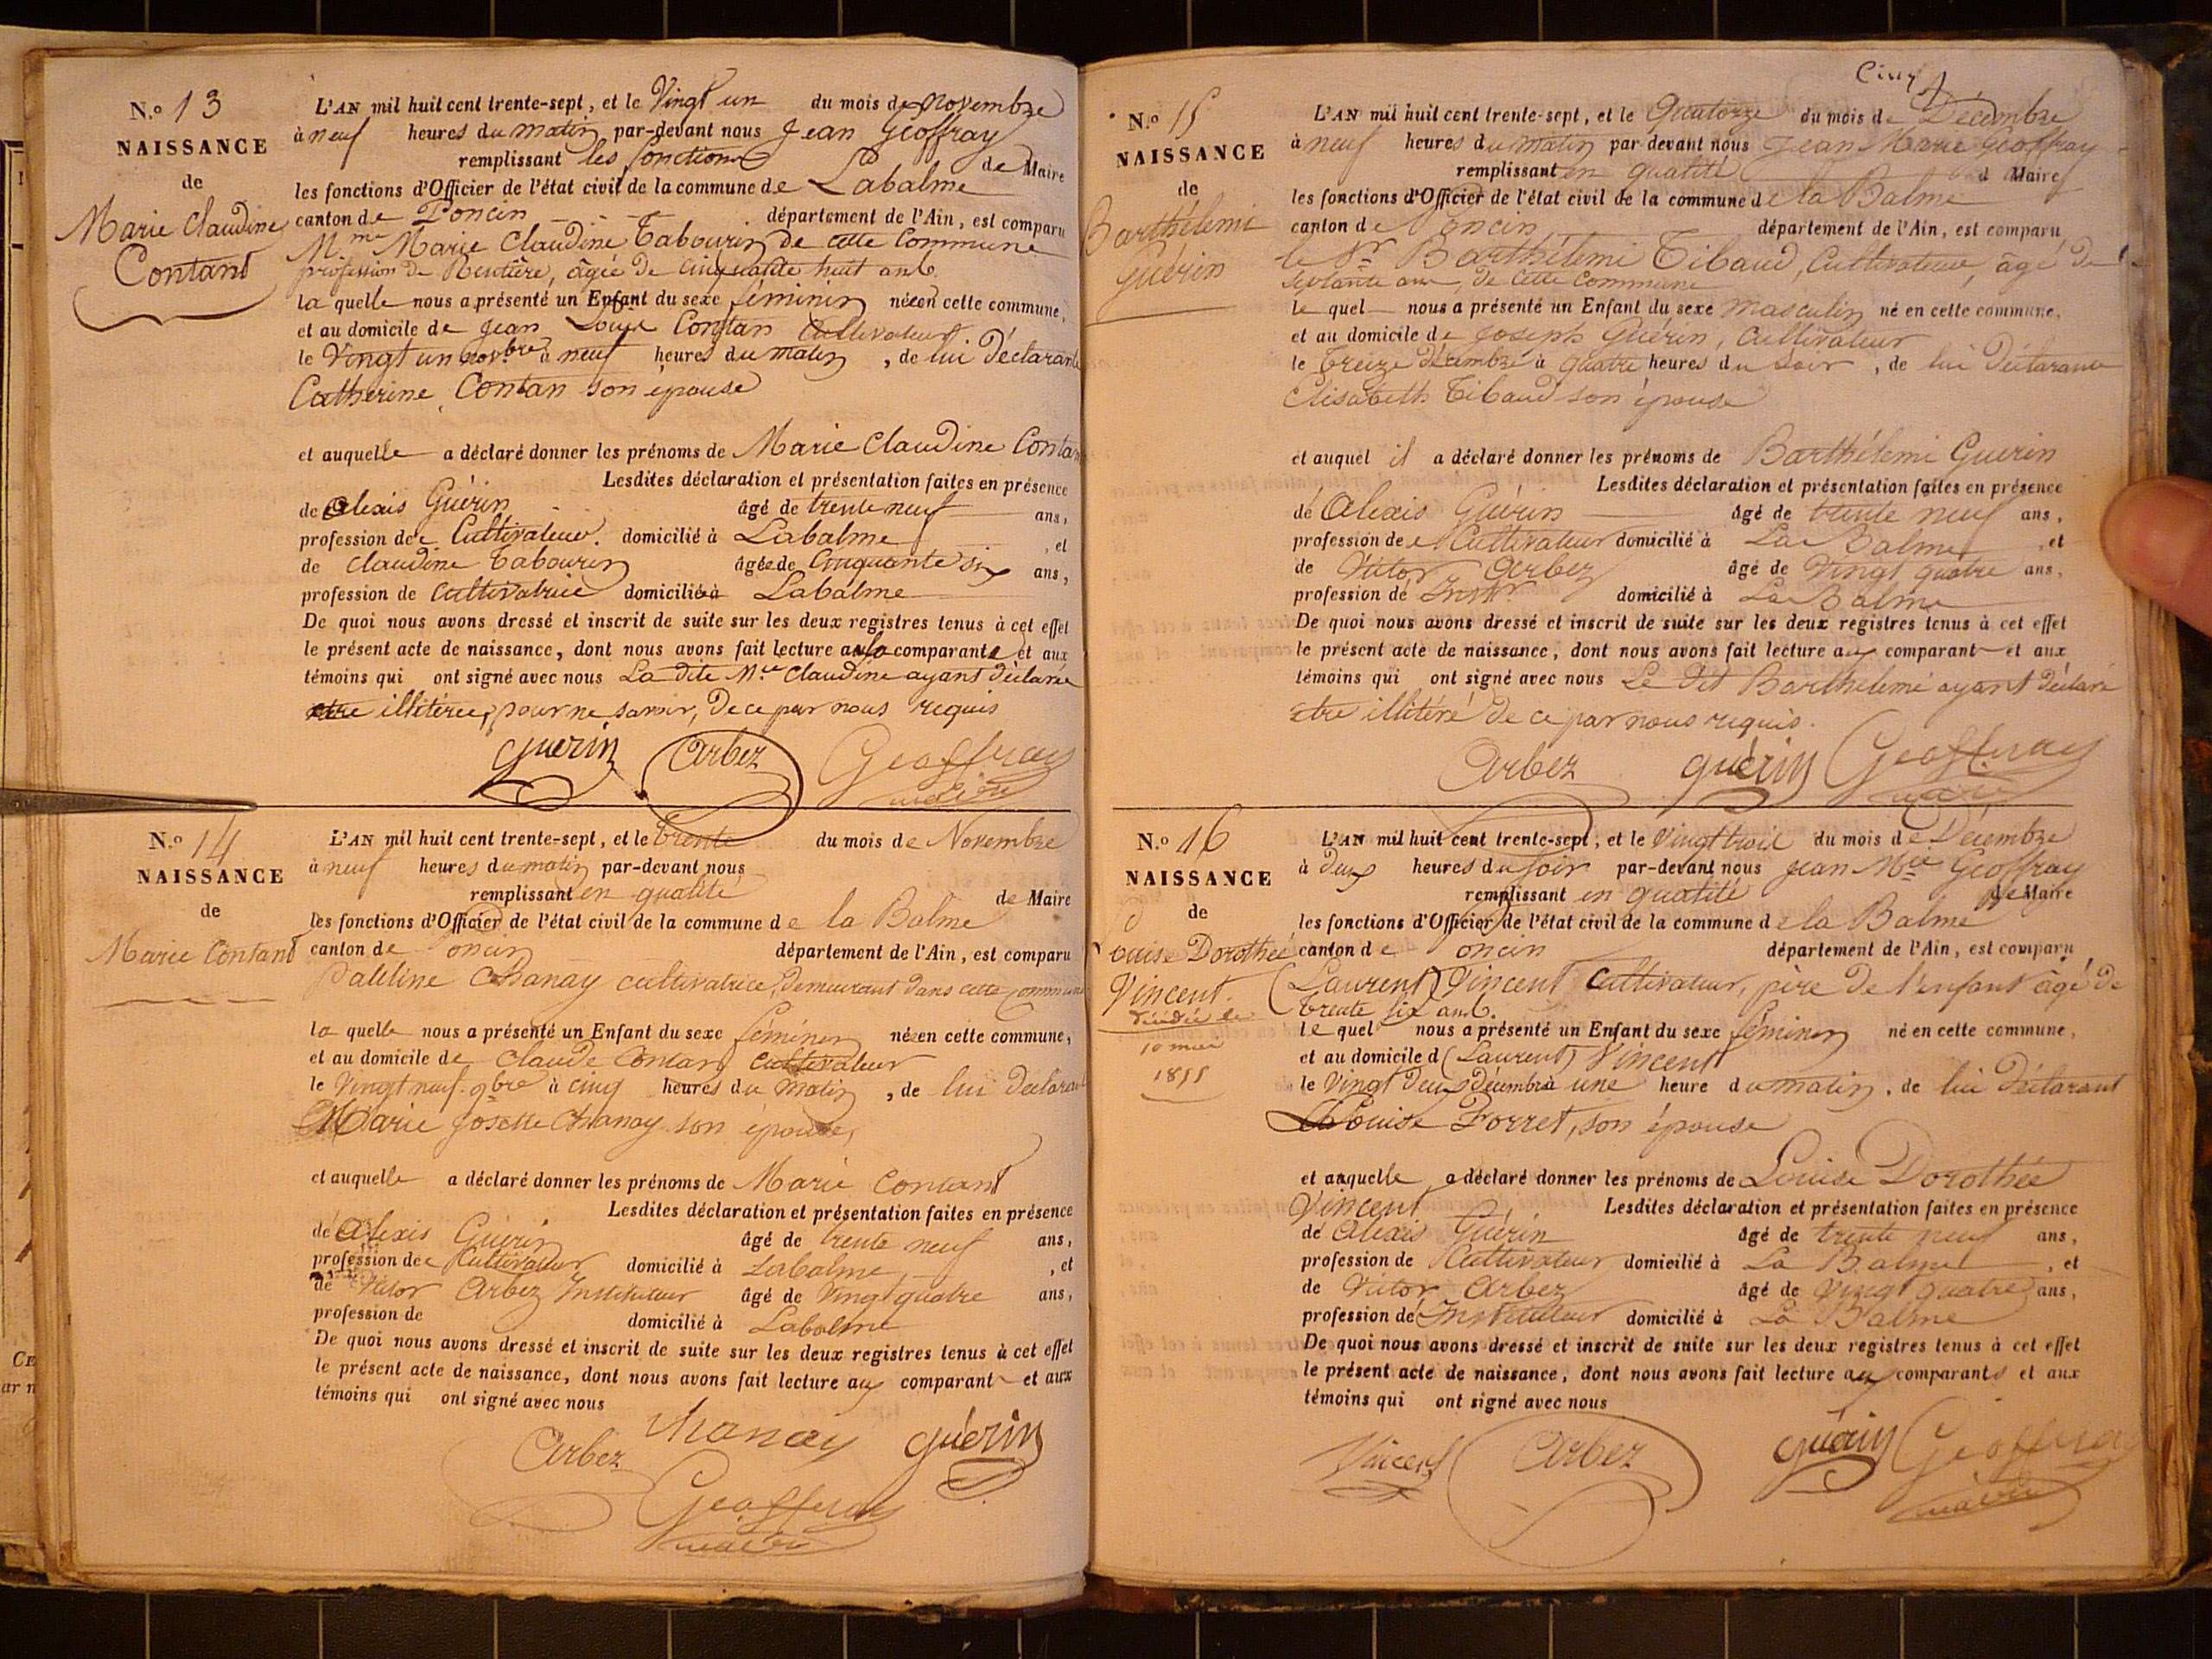 N.o 13
NAISSANCE
de
Marie Claudine
Contant
L'AN mil huit cent trente-sept, et le Vingt un du mois de Novembre
à neuf heures du matin par-devant nous Jean Geoffray
remplissant les fonctions de Maire
les fonctions d'Officier de l'état civil de la commune de Labalme
canton de Poncin département de l'Ain, est comparu
Mme Marie Claudine Tabourin de cette Commune
profession de Rentière, âgée de cinquante huit ans
la quelle nous a présenté un Enfant du sexe féminin née en cette commune,
et au domicile de Jean Louis Contan Cultivateur
le Vingt un novbre à neuf heures du matin, de lui Déclarante
Catherine Contan son épouse
et auquelle a déclaré donner les prénoms de Marie Claudine Contan
Lesdites déclaration et présentation faites en présence
de Alexis Guérin âgé de trente neuf ans,
profession de Cultivateur. domicilié à Labalme, et
de Claudine Tabourin âgée de Cinquante six ans,
profession de Cultivatrice domiciliée à Labalme
De quoi nous avons dressé et inscrit de suite sur les deux registres tenus à cet effet
le présent acte de naissance, dont nous avons fait lecture a la comparante et aux
témoins qui ont signé avec nous La dite Mie Claudine ayant Déclaré
être illitérée, pour ne savoir, De ce par nous requis
Guerin Arbez Geoffray
maire
N.o 14
NAISSANCE
de
Marie Contant
L'AN mil huit cent trente-sept, et le trente du mois de Novembre
à neuf heures du matin par-devant nous
remplissant en qualité de Maire
les fonctions d'Officier de l'état civil de la commune de la Balme
canton de Poncin département de l'Ain, est comparu
Pauline Chanay cultivatrice, Demeurant dans cette Commune
la quelle nous a présenté un Enfant du sexe féminin née en cette commune,
et au domicile de Claude Contant Cultivateur
le Vingt neuf 9bre à cinq heures du matin, de lui Déclarant
Marie Josette Chanay son épouse,
et auquelle a déclaré donner les prénoms de Marie Contant
Lesdites déclaration et présentation faites en présence
de Alexis Guérin âgé de trente neuf ans,
profession de Cultivateur domicilié à Labalme, et
de Victor Arbez Instituteur âgé de Vingt quatre ans,
profession de domicilié à Labalme
De quoi nous avons dressé et inscrit de suite sur les deux registres tenus à cet effet
le présent acte de naissance, dont nous avons fait lecture au comparant et aux
témoins qui ont signé avec nous
Arbez Chanay guérin
Geoffray
maire
Cinq
N.o 15
NAISSANCE
de
Barthélemi
Guérin
L'AN mil huit cent trente-sept, et le Quatorze du mois de Décembre
à neuf heures du matin par-devant nous Jean Marie Geoffray
remplissant en qualité d Maire
les fonctions d'Officier de l'état civil de la commune de la Balme
canton de Poncin département de l'Ain, est comparu
le Sr Barthélemi Tibaud, Cultivateur, âgé de
septante ans, de cette Commune
le quel nous a présenté un Enfant du sexe masculin né en cette commune,
et au domicile de Joseph Guérin, Cultivateur
le treize décembre à quatre heures du soir, de lui Déclarant
Elisabeth Tibaud son épouse
et auquel il a déclaré donner les prénoms de Barthélemi Guerin
Lesdites déclaration et présentation faites en présence
de Alexis Guérin âgé de trente neuf ans,
profession de Cultivateur domicilié à La Balme, et
de Victor Arbez âgé de Vingt quatre ans,
profession de Instr domicilié à La Balme
De quoi nous avons dressé et inscrit de suite sur les deux registres tenus à cet effet
le présent acte de naissance, dont nous avons fait lecture au comparant et aux
témoins qui ont signé avec nous Le dit Barthélemi ayant déclaré
etre illitéré de ce par nous requis.
Arbez guérin Geoffray
maire
N.o 16
NAISSANCE
de
Louise Dorothée
Vincent
décédée le
10 mai
1855
L'AN mil huit cent trente-sept, et le Vingt trois du mois de Décembre
à deux heures du soir par-devant nous Jean Mie Geoffray
remplissant en qualité de Maire
les fonctions d'Officier de l'état civil de la commune de la Balme
canton de Poncin département de l'Ain, est comparu
(Laurent) Vincent Cultivateur, père de l'enfant âgé de
trente six ans.
le quel nous a présenté un Enfant du sexe féminin né en cette commune,
et au domicile d (Laurent) Vincent
le Vingt deux décembre à une heure du matin, de lui déclarant
Louise Forret, son épouse
et auquelle a déclaré donner les prénoms de Louise Dorothée
Vincent Lesdites déclaration et présentation faites en présence
de Alexis Guérin âgé de trente neuf ans,
profession de Cultivateur domicilié à La Balme, et
de Victor Arbez âgé de Vingt quatre ans,
profession de Instituteur domicilié à La Balme
De quoi nous avons dressé et inscrit de suite sur les deux registres tenus à cet effet
le présent acte de naissance, dont nous avons fait lecture aux comparants et aux
témoins qui ont signé avec nous
Vincent Arbez guérin Geoffray
maire